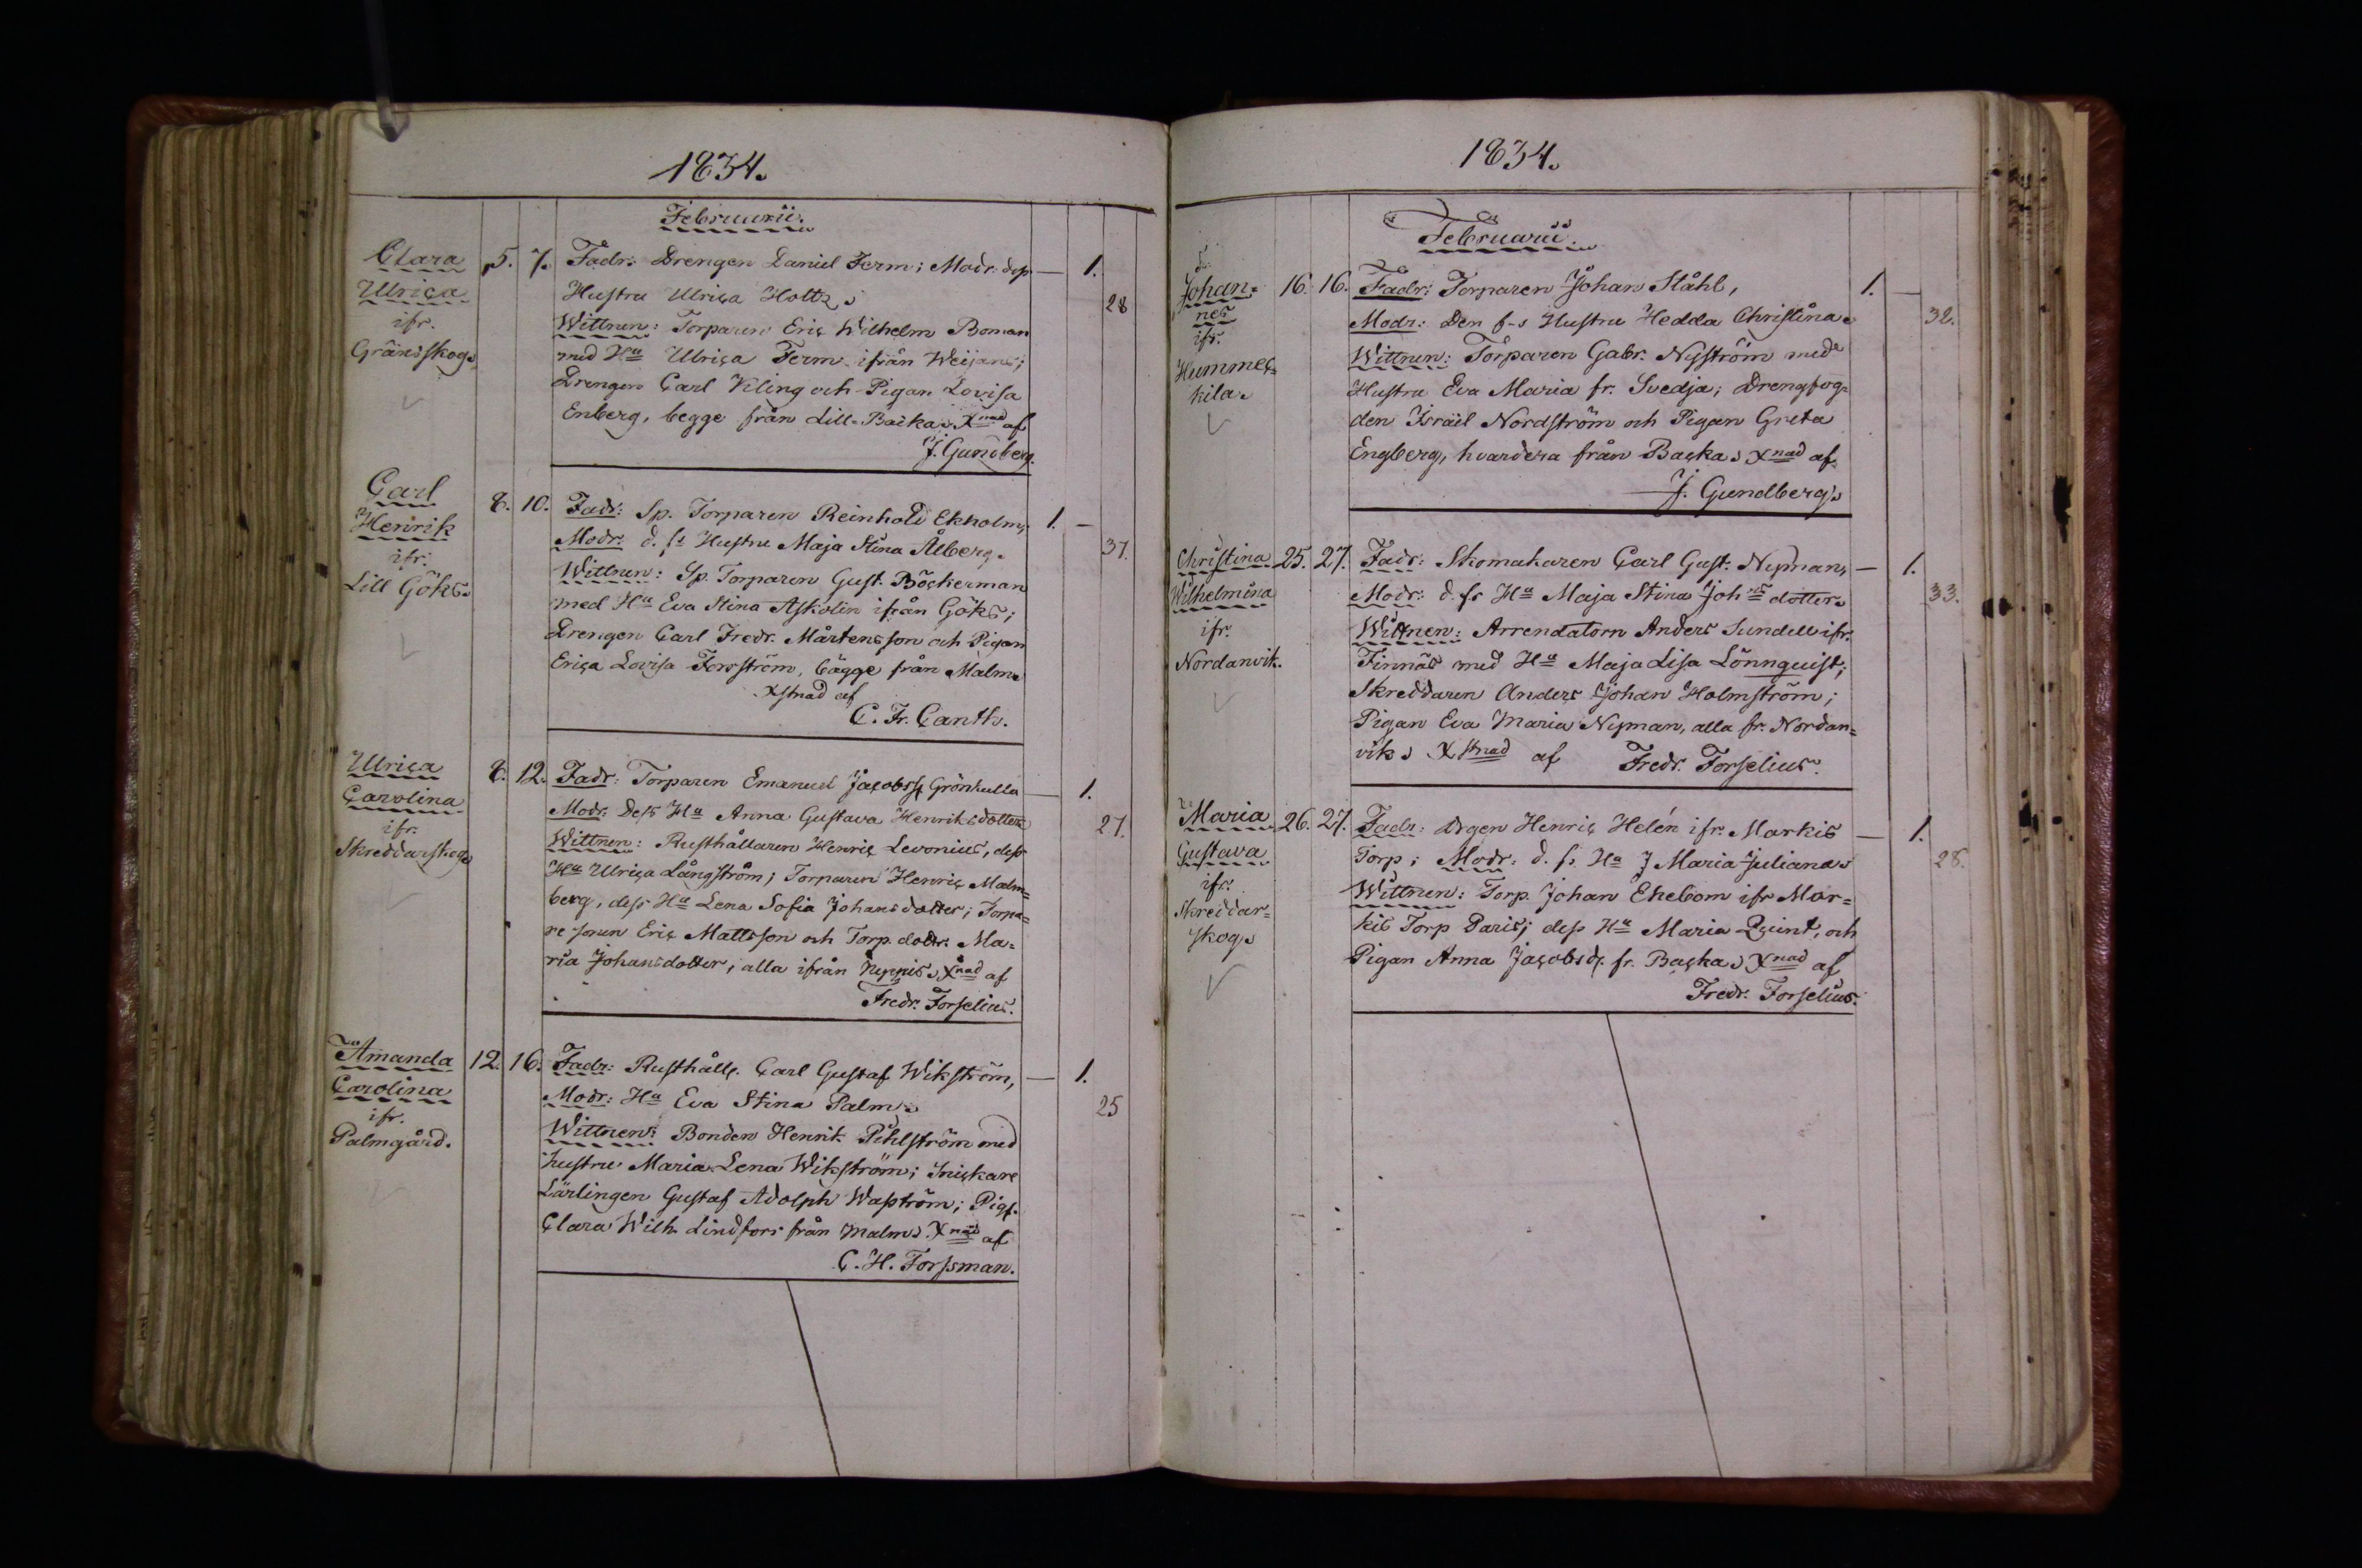 1834.
Februarii.
Clara 5. 7. Fadr: Drengen Daniel Ferm; Modr. dess — 1.
Ulrica Hustru Ulrica Holtz. 28
ifr. Wittnen: Torparen Eric Wilhelm Boman
Gränsskog. med Hu Ulrica Ferm ifrån Weijans;
Drengen Carl Kling och Pigan Lovisa
Enberg, begge från Lill-Backa. Xnad af
J. Gundberg.
Carl 8. 10. Fadr: Sp. Torparen Reinhold Ekholm, 1. —
Henrik Modr. d. fs Hustru Maja Stina Ålberg. 37.
ifr. Wittnen: Sp. Torparen Gust. Böckerman
Lill Göks. med Hu Eva Stina Askolin ifrån Göks;
Drengen Carl Fredr. Mårtensson och Pigan
Erica Lovisa Forsström, bägge från Malm.
Xstnad af
C. Fr. Canth.
Ulrica 8. 12. Fadr: Torparen Emanuel Jacobss. Grönkulla — 1.
Carolina Modr. Dess Hu Anna Gustava Henriksdotter 27.
ifr. Wittnen: Rusthållaren Henric Levonius, dess
Skreddarskog Hu Ulrica Långström; Torparen Henric Malm=
berg, dess Hu Lena Sofia Johansdotter; Torpa=
re sonen Eric Mattsson och Torp. dottr. Ma=
ria Johansdotter, alla ifrån Xnad af
Fredr. Forselius.
Amanda 12. 16. Fadr: Rusthåll. Carl Gustaf Wikström, — 1.
Carolina Modr: Hu Eva Stina Palm. 25
ifr. Wittnen: Bonden Henrik Pihlström med
Palmgård. hustru Maria Lena Wikström; Snickare
Lärlingen Gustaf Adolph Waström; Pig.
Clara Wilh. Lindfors från Malm. Xnad af
C. H. Forssman.
1834.
Februarii.
Johan= 16. 16. Fadr: Torparen Johan Ståhl, 1. —
nes Modr: Den f-s Hustru Hedda Christina. 32.
ifr. Wittnen: Torparen Gabr. Nyström med
Hummel= Hustru Eva Maria fr. Svedja; Drengfog=
kila. den Israël Nordström och Pigan Greta
Engberg, hvardera från Backa. Xnad af
J. Gundberg.
Christina 25. 27. Fadr: Skomakaren Carl Gust. Nyman, — 1.
Wilhelmina Modr: d. fs Hu Maja Stina Johns dotter. 33.
ifr. Wittnen: Arrendatorn Anders Sundell ifr.
Nordanvik. Finnäs med Hu Maja Lisa Lönnquist;
Skreddaren Anders Johan Holmström;
Pigan Eva Maria Nyman, alla fr. Nordan=
vik. Xstnad af Fredr. Forselius.
Maria 26. 27. Fadr: Drgen Henric Helén ifr. Markis — 1.
Gustava Torp; Modr: d. fs. Hu J Maria Juliana. 28.
ifr. Wittnen: Torp. Johan Ekebom ifr Mar=
Skreddar= kis Torp Paris; dess Hu Maria Quint, och
skog. Pigan Anna Jacobsd. fr. Backa. Xnad af
Fredr. Forselius.